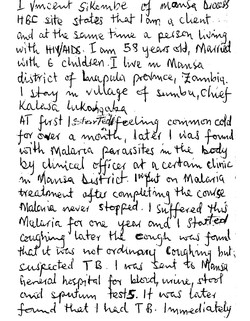 I Vincent Sikembe of Mansa Diocese
HBC site states that I am a client
and at the same time a person living
with HIV/AIDS. I am 58 years old, Married
with 6 children. I live in Mansa
district of Luapula province, Zambia.
I stay in village of Sumbu, Chief
Kalasa Lukangaba
At first I started feeling common cold
for over a month, later I was found
with Malaria parasites in the body
by clinical officer at a certain clinic
in Mansa District. I put on Malaria
treatment after completing the course
Malaria never stopped. I suffered this
Malaria for one year and I started
coughing later the cough was found
that it was not ordinary coughing but
suspected TB. I was sent to Mansa
General hospital for blood, urine, stool
and sputum tests. It was later
found that I had TB. Immediately